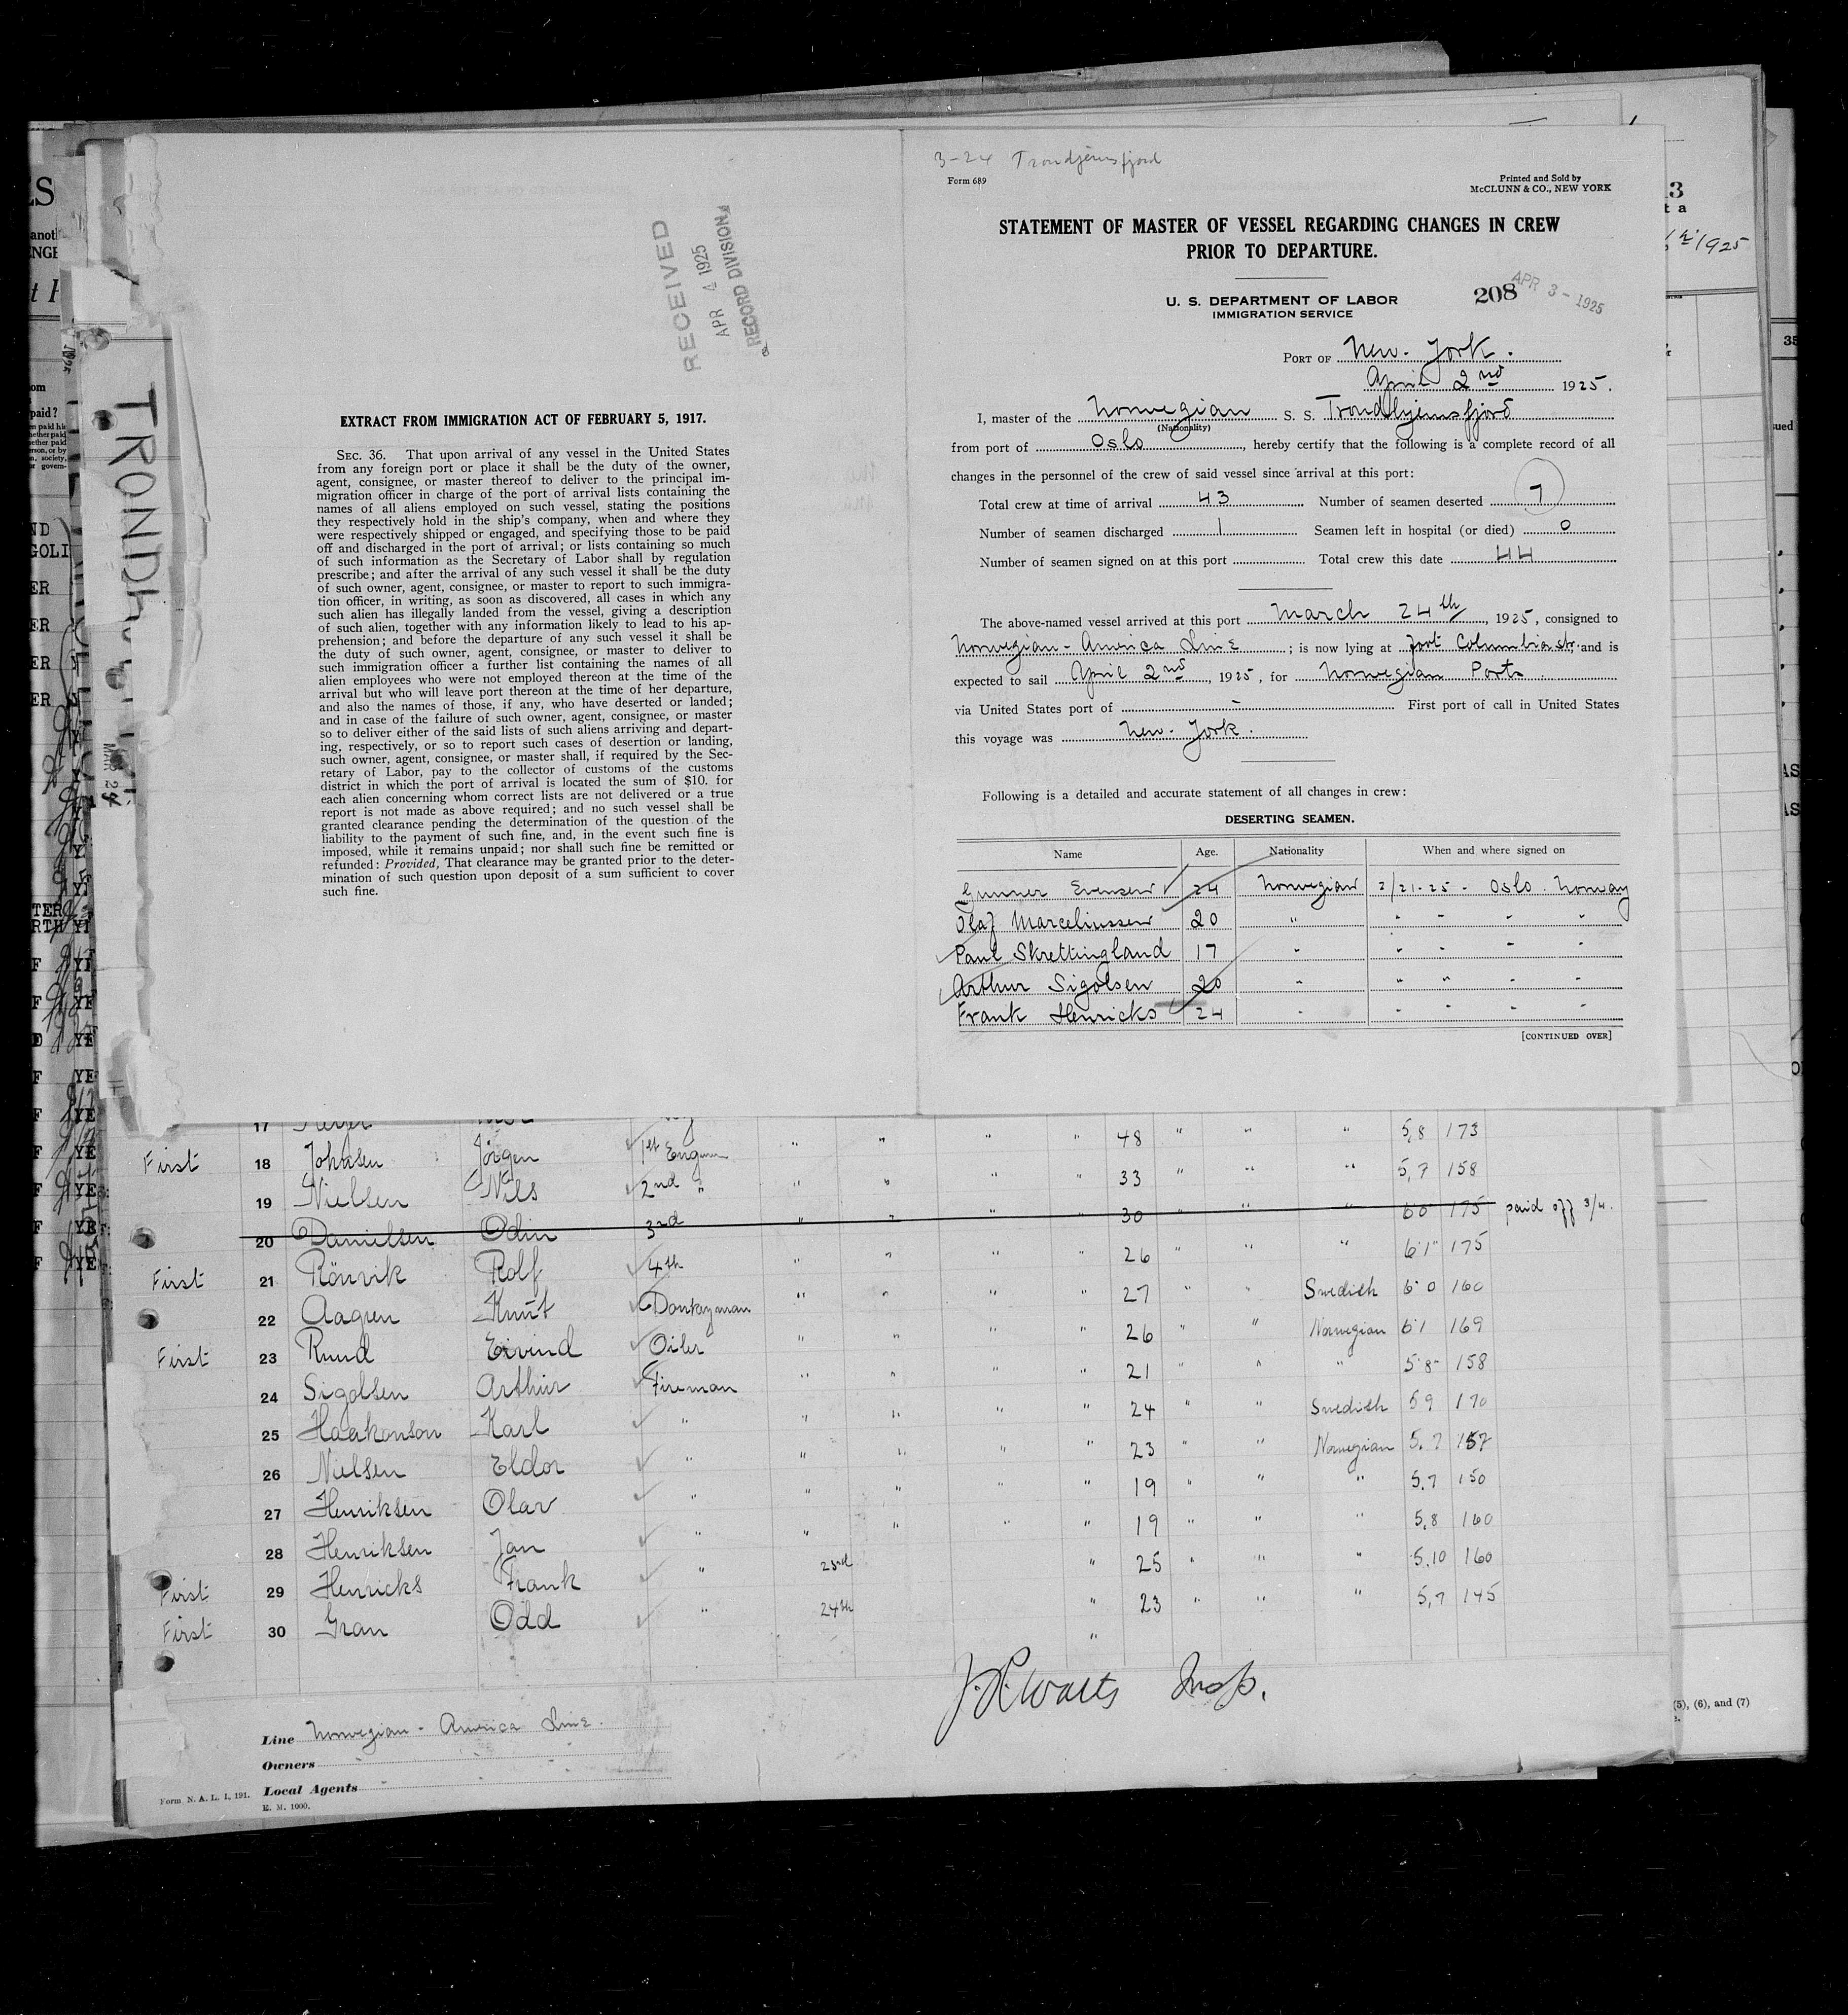 3-24 Trondhjemsfjord
Form 689
Printed and Sold by
McCLUNN & CO., NEW YORK
STATEMENT OF MASTER OF VESSEL REGARDING CHANGES IN CREW
PRIOR TO DEPARTURE.
U. S. DEPARTMENT OF LABOR
IMMIGRATION SERVICE
208 APR 3 - 1925
PORT OF New. York.
April 2nd 1925.
I, master of the Norwegian S. S. Trondhjemsfjord
(Nationality)
from port of Oslo, hereby certify that the following is a complete record of all
changes in the personnel of the crew of said vessel since arrival at this port:
Total crew at time of arrival 43 Number of seamen deserted 7
Number of seamen discharged 1 Seamen left in hospital (or died) 0
Number of seamen signed on at this port Total crew this date 44
The above-named vessel arrived at this port March 24th, 1925, consigned to
Norwegian-America Line; is now lying at foot Columbia str, and is
expected to sail April 2nd, 1925, for Norwegian Ports.
via United States port of - First port of call in United States
this voyage was New. York.
Following is a detailed and accurate statement of all changes in crew:
DESERTING SEAMEN.
Name Age. Nationality When and where signed on
Gunner Evensen 24 Norwegian 2/21-25 - Oslo. Norway
Olaf Marceliussen 20 " " " " "
Paul Skrettingland 17 " " " " "
Arthur Sigolsen 20 " " " " "
Frank Henricks 24 " " " " "
[CONTINUED OVER]
RECEIVED
APR 4 1925
RECORD DIVISION
EXTRACT FROM IMMIGRATION ACT OF FEBRUARY 5, 1917.
SEC. 36. That upon arrival of any vessel in the United States
from any foreign port or place it shall be the duty of the owner,
agent, consignee, or master thereof to deliver to the principal im-
migration officer in charge of the port of arrival lists containing the
names of all aliens employed on such vessel, stating the positions
they respectively hold in the ship's company, when and where they
were respectively shipped or engaged, and specifying those to be paid
off and discharged in the port of arrival; or lists containing so much
of such information as the Secretary of Labor shall by regulation
prescribe; and after the arrival of any such vessel it shall be the duty
of such owner, agent, consignee, or master to report to such immigra-
tion officer, in writing, as soon as discovered, all cases in which any
such alien has illegally landed from the vessel, giving a description
of such alien, together with any information likely to lead to his ap-
prehension; and before the departure of any such vessel it shall be
the duty of such owner, agent, consignee, or master to deliver to
such immigration officer a further list containing the names of all
alien employees who were not employed thereon at the time of the
arrival but who will leave port thereon at the time of her departure,
and also the names of those, if any, who have deserted or landed;
and in case of the failure of such owner, agent, consignee, or master
so to deliver either of the said lists of such aliens arriving and depart-
ing, respectively, or so to report such cases of desertion or landing,
such owner, agent, consignee, or master shall, if required by the Sec-
retary of Labor, pay to the collector of customs of the customs
district in which the port of arrival is located the sum of $10. for
each alien concerning whom correct lists are not delivered or a true
report is not made as above required; and no such vessel shall be
granted clearance pending the determination of the question of the
liability to the payment of such fine, and, in the event such fine is
imposed, while it remains unpaid; nor shall such fine be remitted or
refunded: Provided, That clearance may be granted prior to the deter-
mination of such question upon deposit of a sum sufficient to cover
such fine.
TRONDH
17
First 18 Johnsen Jörgen 1st Engineer " " " " 48 " " " 5,8 173
19 Nielsen Nils 2nd " " " " " 33 " " " 5,7 158
20 Danielsen Odin 3rd " " " " 30 " " " 6 0 175 paid off 3/4.
First 21 Rönvik Rolf 4th " " " " 26 " " " 6'1" 175
22 Aagren Knut Donkeyman " " " " 27 " " Swedish 6'0 160
First 23 Ruud Eivind Oiler " " " " 26 " " Norwegian 6'1 169
24 Sigolsen Arthur Fireman " " " " 21 " " " 5'8" 158
25 Haakonson Karl " " " " " 24 " " Swedish 5 9 170
26 Nielsen Eldor " " " " " 23 " " Norwegian 5.7 157
27 Henriksen Olav " " " " " 19 " " " 5.7 150
28 Henriksen Jan " " " " " 19 " " " 5,8 160
First 29 Henricks Frank " 23rd " 25 " " " 5,10 160
First 30 Gran Odd " 24th " 23 " " " 5,7 145
J. P. Watts Insp.
Line Norwegian-America Line.
Owners - - -
Local Agents - - -
Form N. A. L. I, 191.
E. M. 1000.
(5), (6), and (7)